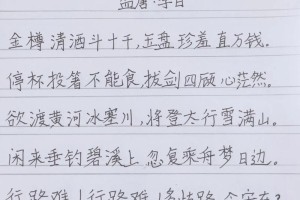 盛唐·李白
金樽清酒斗十千,玉盘珍羞直万钱。
停杯投箸不能食,拔剑四顾心茫然。
欲渡黄河冰塞川,将登太行雪满山。
闲来垂钓碧溪上 忽复乘舟梦日边。
行路难!行路难!多歧路 今安在?